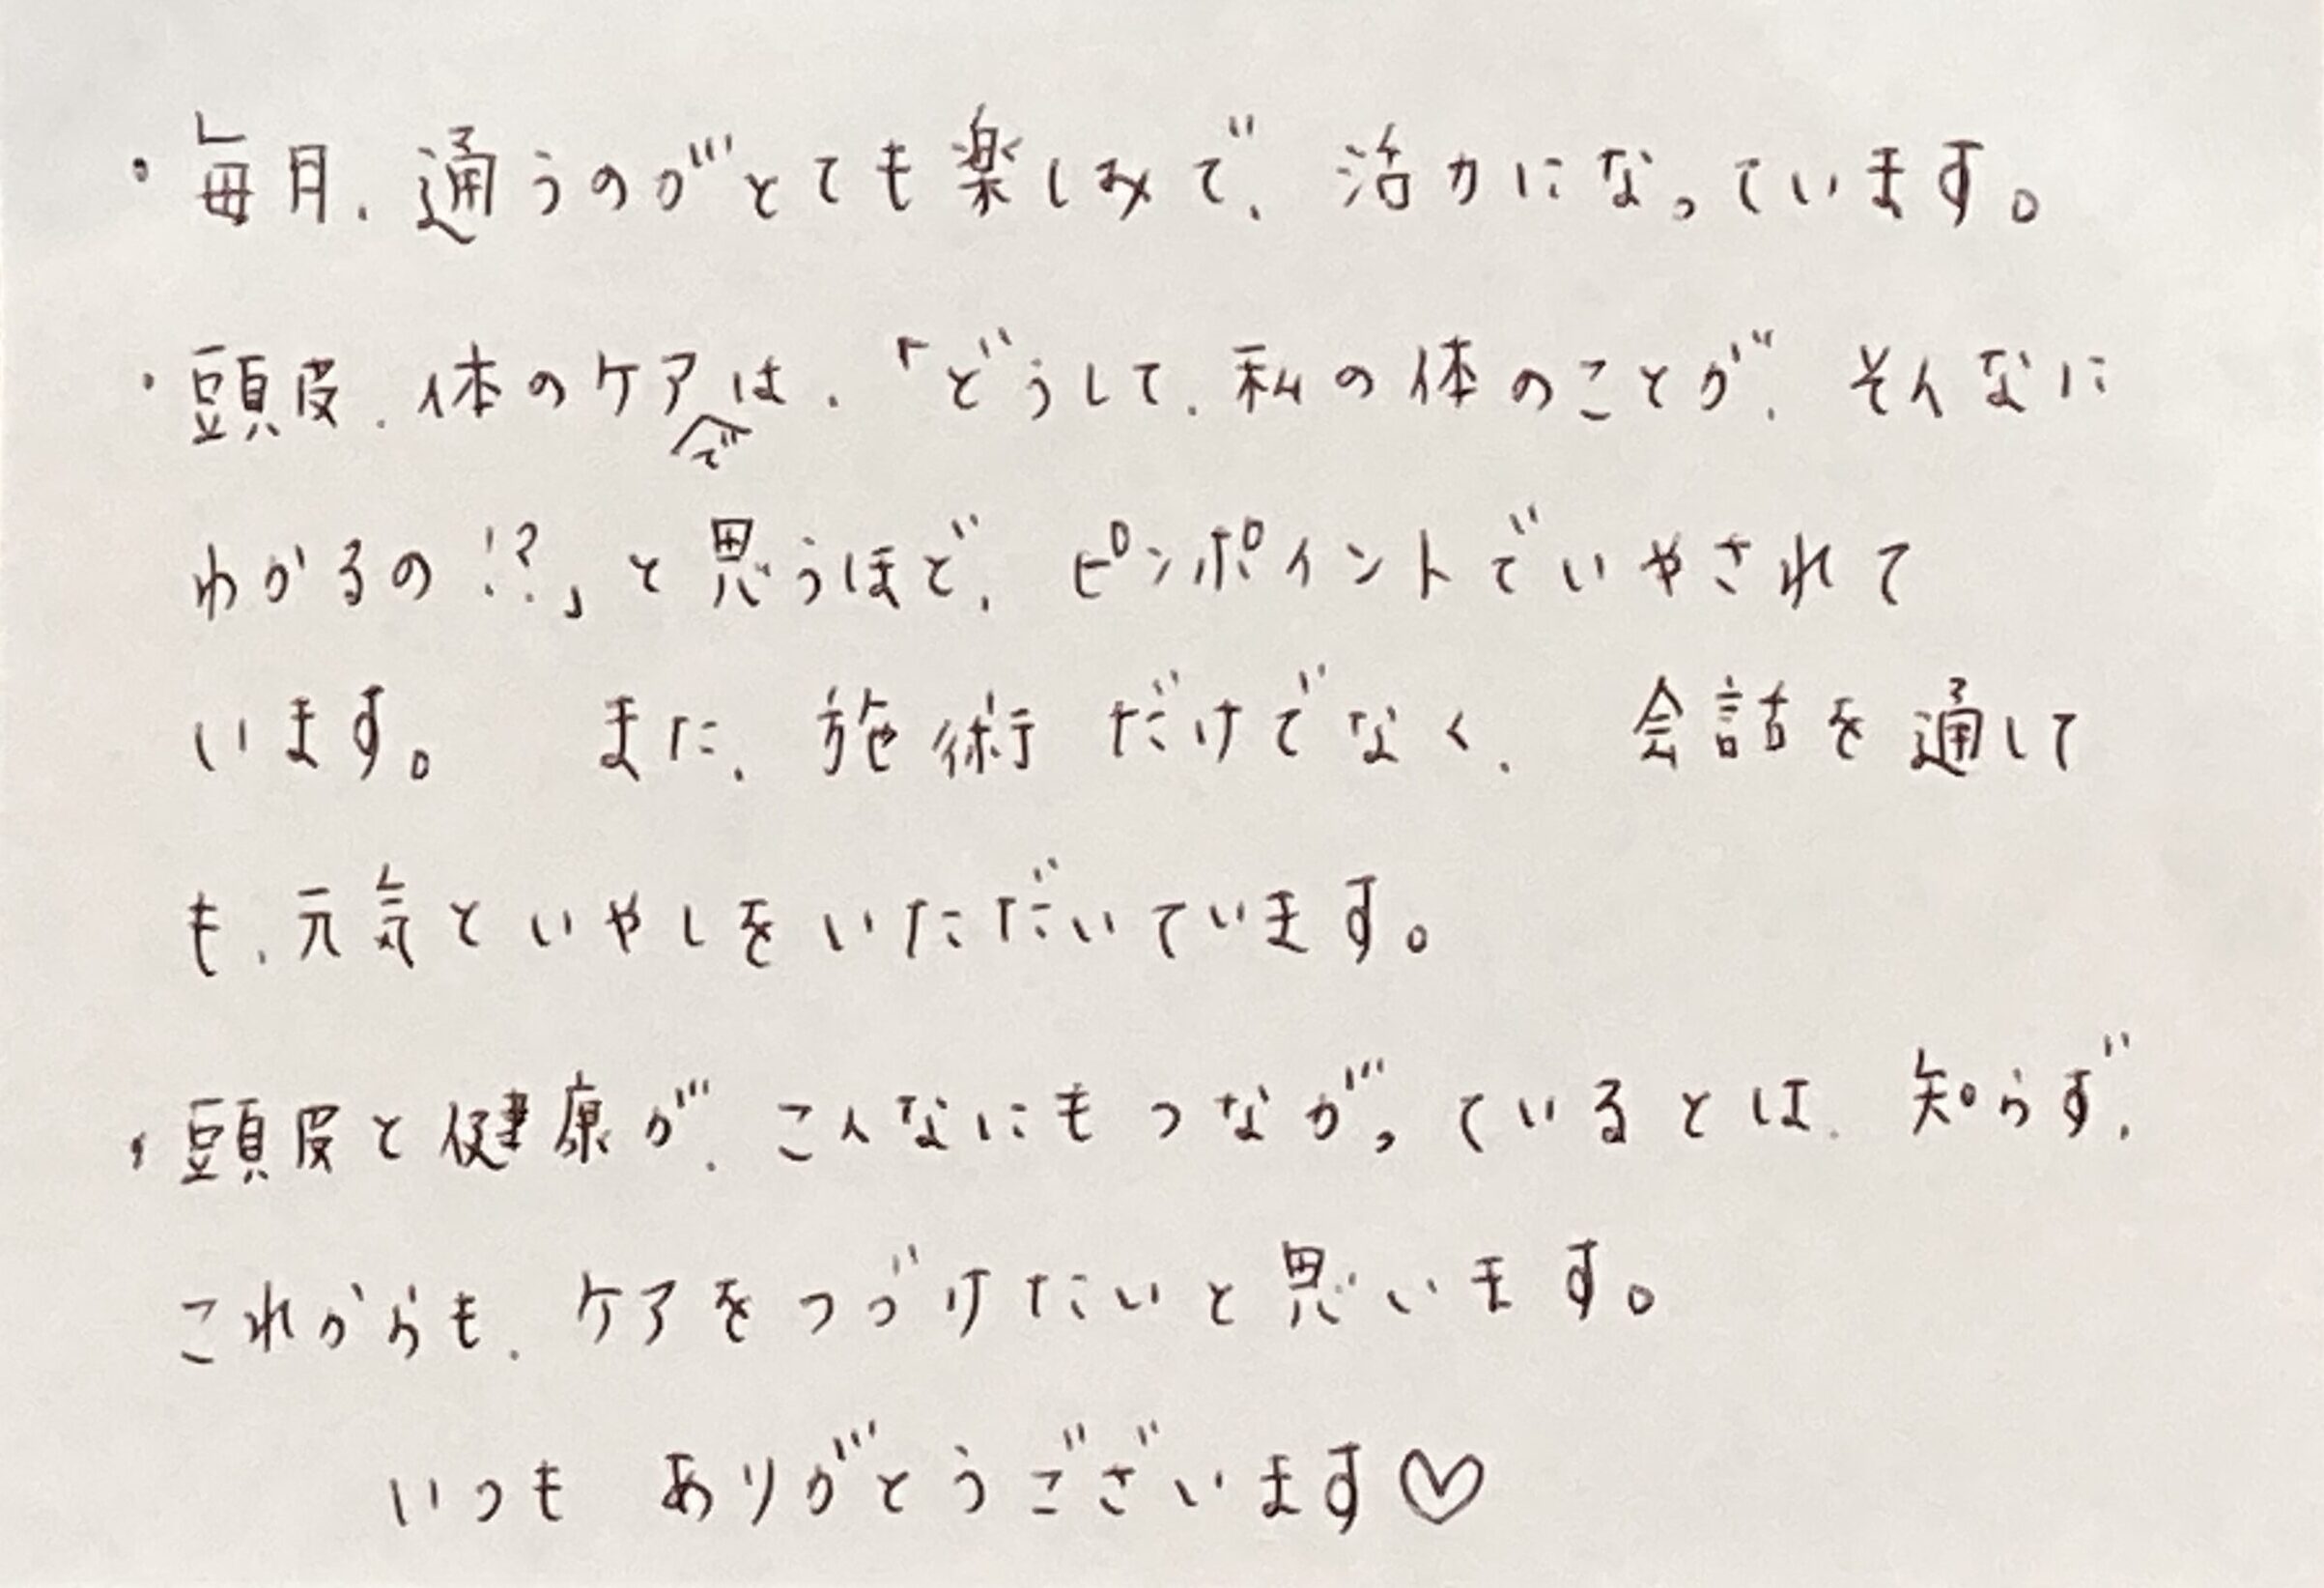 ・毎月、通うのがとても楽しみで、活力になっています。
・頭皮、体のケアでは、「どうして、私の体のことが、そんなに
わかるの!?」と思うほど、ピンポイントでいやされて
います。 また、施術だけでなく、会話を通して
も、元気といやしをいただいています。
・頭皮と健康が、こんなにもつながっているとは、知らず、
これからも、ケアをつづけたいと思います。
いつも ありがとうございます♡